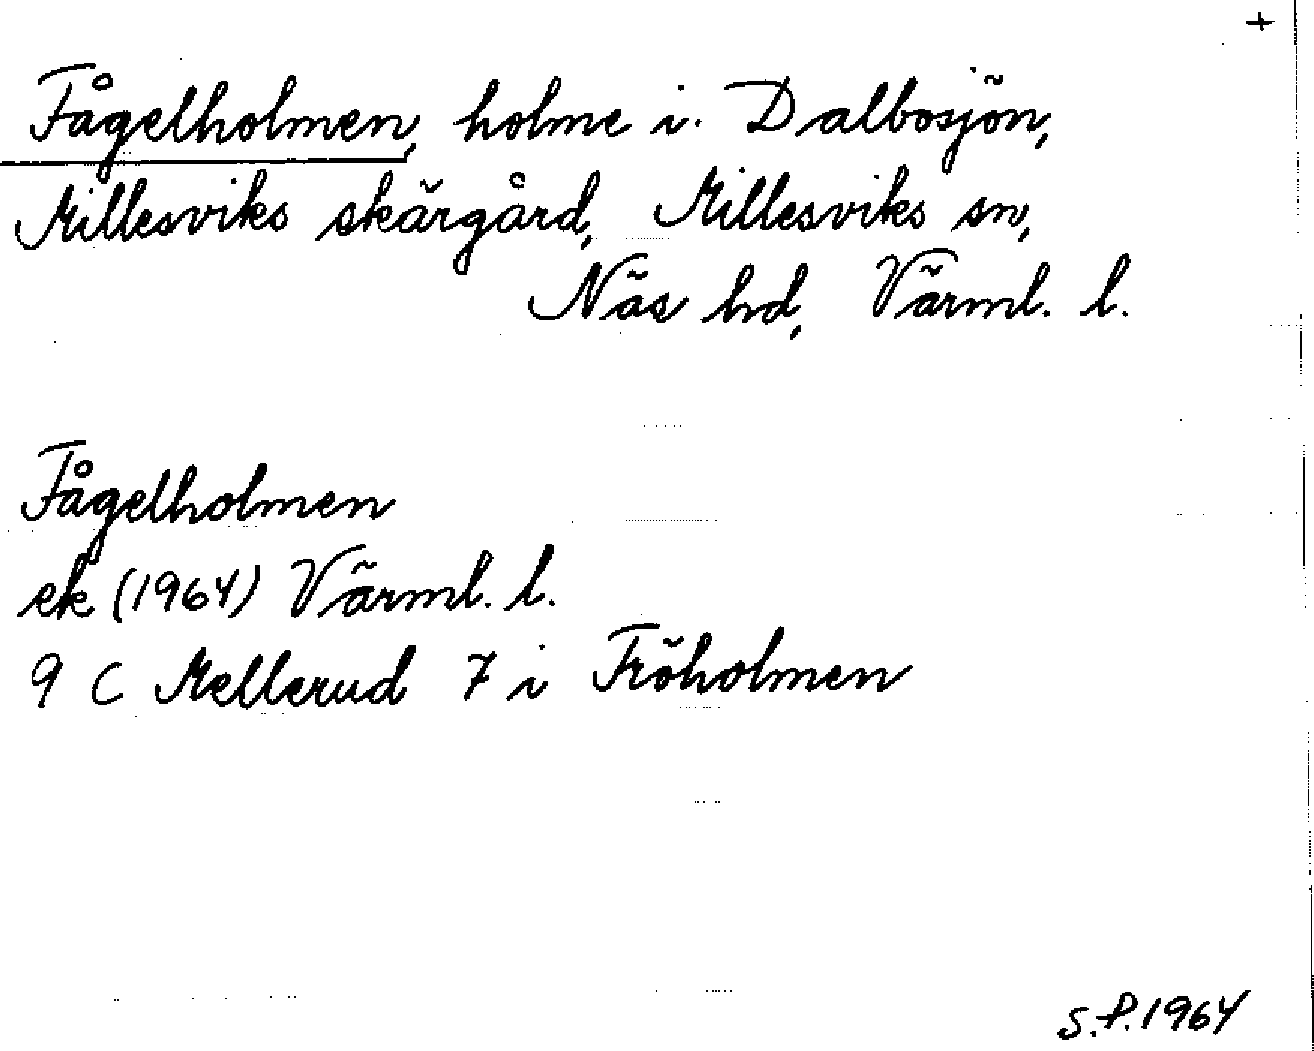 +
Fågelholmen, holme i. Dalbosjön,
Millesviks skärgård, Millesviks sn,
Näs hd, Värml. l.
Fågelholmen
ek (1964) Värml. l.
9 C Mellerud 7 i Fröholmen
S.P. 1964